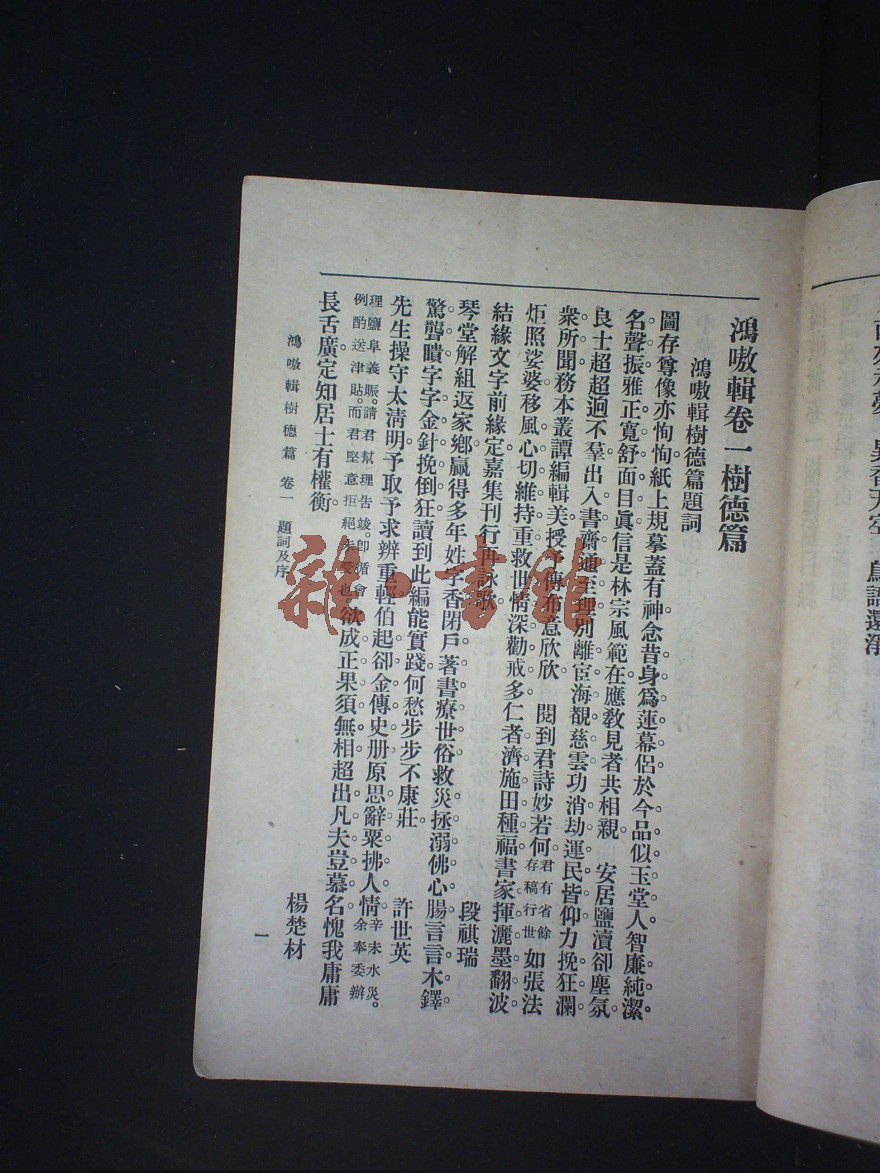 鴻嗷輯卷一樹德篇
鴻嗷輯樹德篇題詞
圖存尊像亦恂恂紙上規摹蓋有神。念昔身爲蓮幕侶於今品似玉堂人。智廉純潔
名聲振雅正寬舒面目眞。信是林宗風範在應教見者共相親 安居鹽瀆卻塵氛。
良士超超迥不羣。出入書齋通至理別離宦海覩慈雲。功消劫運民皆仰力挽狂瀾
衆所聞。務本叢譚編輯美授予傳布意欣欣 閱到君詩妙若何。君有省餘存稿行世如張法
炬照娑婆。移風心切維持重救世情深勸戒多。仁者濟施田種福書家揮灑墨翻波。
結緣文字前緣定嘉集刊行再詠歌。 段祺瑞
琴堂解組返家鄉。贏得多年姓字香。閉戶著書療世俗救災拯溺佛心腸。言言木鐸
驚聾聵字字金針挽倒狂。讀到此編能實踐何愁步步不康莊 許世英
先生操守太清明。予取予求辨重輕。伯起卻金傳史册原思辭粟拂人情。辛未水災。余奉委辦
理鹽阜義賑。請君幫理告竣。卽循會例酌送津貼。而君堅意拒絕未受也。欲成正果須無相超出凡夫豈慕名。愧我庸庸
長舌廣定知居士有權衡。 楊楚材
鴻嗷輯樹德篇 卷一 題詞及序
一
雜·書館